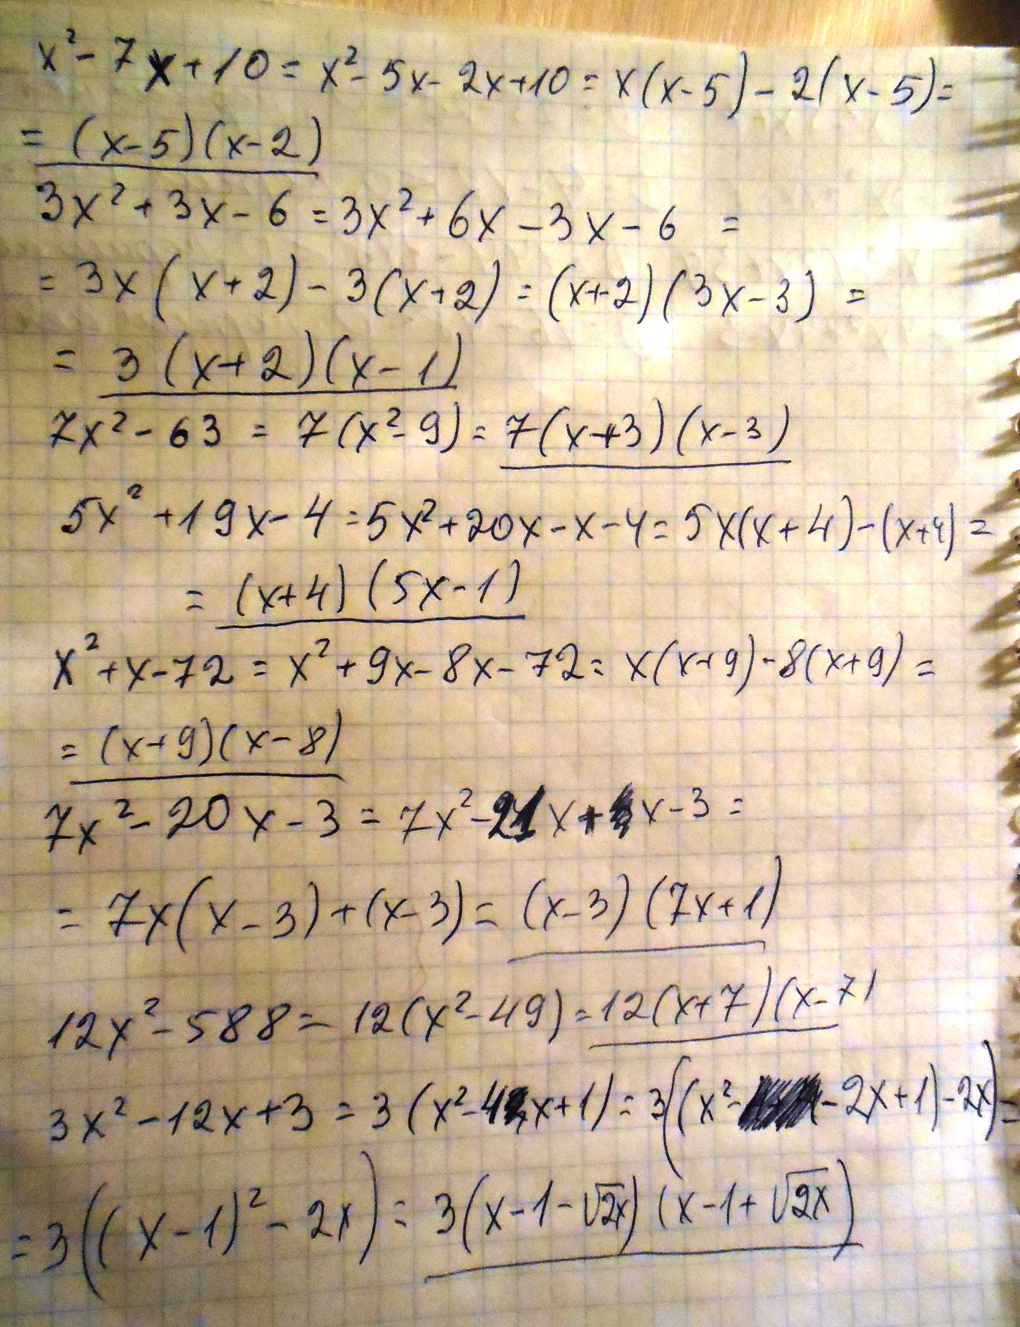 x² - 7x + 10 = x² - 5x - 2x + 10 = x(x-5) - 2(x-5) =
= (x-5)(x-2)
3x² + 3x - 6 = 3x² + 6x - 3x - 6 =
= 3x(x+2) - 3(x+2) = (x+2)(3x-3) =
= 3(x+2)(x-1)
7x² - 63 = 7(x²-9) = 7(x+3)(x-3)
5x² + 19x - 4 = 5x² + 20x - x - 4 = 5x(x+4) - (x+4) =
= (x+4)(5x-1)
x² + x - 72 = x² + 9x - 8x - 72 = x(x+9) - 8(x+9) =
= (x+9)(x-8)
7x² - 20x - 3 = 7x² - 21x + x - 3 =
= 7x(x-3) + (x-3) = (x-3)(7x+1)
12x² - 588 = 12(x²-49) = 12(x+7)(x-7)
3x² - 12x + 3 = 3(x²-4x+1) = 3((x² - - 2x+1) - 2x) =
= 3((x-1)² - 2x) = 3(x-1-√2x)(x-1+√2x)